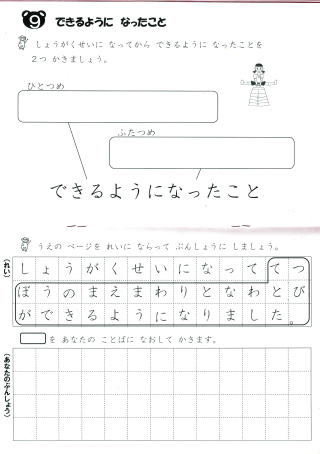 9 できるように なったこと
しょうがくせいに なってから できるように なったことを
2つ かきましょう。
ひとつめ
ふたつめ
できるようになったこと
うえの ページを れいに ならって ぶんしょうに しましょう。
(れい)
しょうがくせいになっててつ
ぼうのまえまわりとなわとび
ができるようになりました。
を あなたの ことばに なおして かきます。
(あなたのぶんしょう)